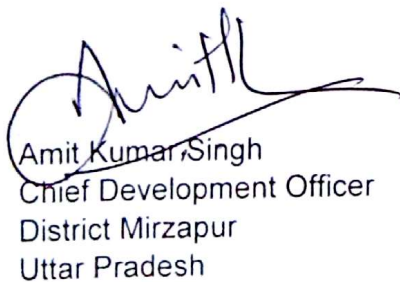 Amit
Amit Kumar Singh
Chief Development Officer
District Mirzapur
Uttar Pradesh